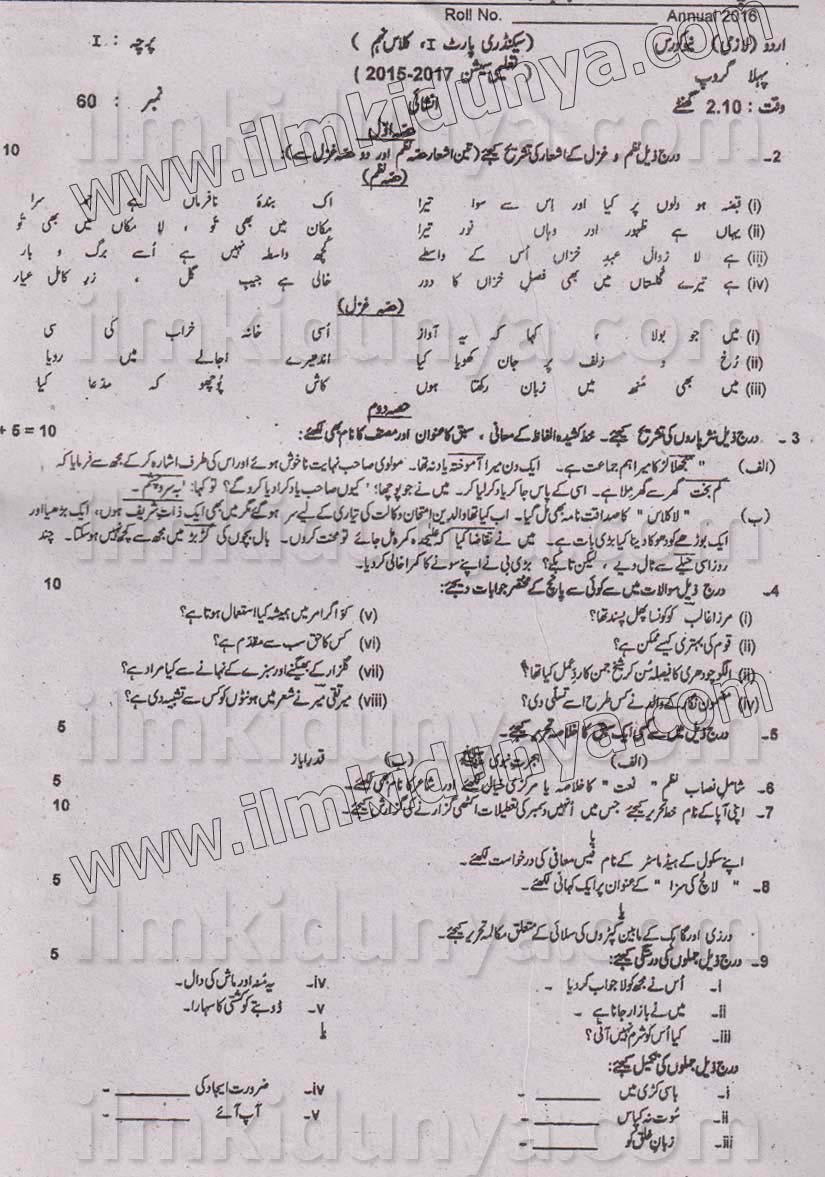 Roll No. ____________ Annual 2016
اردو (لازمی) نیوکورس (سیکنڈری پارٹ I، کلاس نہم) پرچہ : I
پہلا گروپ (تعلیمی سیشن 2015-2017)
وقت : 2.10 گھنٹے انشائی نمبر : 60
حصہ اوّل
2۔ درج ذیل نظم و غزل کے اشعار کی تشریح کیجئے (تین اشعار حصہ نظم اور دو حصہ غزل سے): 10
(حصہ نظم)
(i) قبضہ ہو دلوں پر کیا اور اس سے سوا تیرا اک بندۂ نافرماں ہے حمد سرا
(ii) یہاں ہے ظہور اور وہاں نور تیرا مکاں میں بھی تُو ، لا مکاں میں بھی تُو
(iii) ہے لا زوال عہدِ خزاں اُس کے واسطے کُچھ واسطہ نہیں ہے اُسے برگ و بار
(iv) ہے تیرے گلستاں میں بھی فصلِ خزاں کا دور خالی ہے جیبِ گل ، زرِ کامل عیار
(حصہ غزل)
(i) میں جو بولا ، کہا کہ یہ آواز اُسی خانہ خراب کی سی
(ii) رُخ و زلف پر جان کھویا کیا اندھیرے اجالے میں رویا
(iii) میں بھی مُنھ میں زبان رکھتا ہوں کاش پُوچھو کہ مدّعا کیا
حصہ دوم
3۔ درج ذیل نثر پاروں کی تشریح کیجئے۔ خط کشیدہ الفاظ کے معانی ، سبق کا عنوان اور مصنف کا نام بھی لکھئے: + 5 = 10
(الف) "منجھلا لڑکا میرا ہم جماعت ہے۔ ایک دن میرا آموختہ یاد نہ تھا۔ مولوی صاحب نہایت ناخوش ہوئے اور اس کی طرف اشارہ کر کے مجھ سے فرمایا کہ
کم بخت گھر سے گھر ملا ہے۔ اسی کے پاس جا کر یاد کر لیا کر۔ میں نے جو پوچھا؛ 'کیوں صاحب یاد کرا دیا کرو گے؟' تو کہا: 'بہ سر و چشم۔
(ب) "لا کلاس" کا صداقت نامہ بھی مل گیا۔ اب کیا تھا والدین امتحان وکالت کی تیاری کے لیے سر ہو گئے مگر میں بھی ایک ذاتِ شریف ہوں، ایک بڑھیا اور
ایک بوڑھے کو دھوکا دینا کیا بڑی بات ہے۔ میں نے تقاضا کیا کہ علیٰحدہ کمرہ مل جائے تو محنت کروں۔ بال بچوں کی گڑبڑ میں مجھ سے کچھ نہیں ہوسکتا۔ چند
روز اسی حیلے سے ٹال دیے ، لیکن تابکے؟ بڑی بی نے اپنے سونے کا کمرا خالی کر دیا۔
4۔ درج ذیل سوالات میں سے کوئی سے پانچ کے مختصر جوابات دیجئے: 10
(i) مرزا غالب کو کونسا پھل پسند تھا؟ (v) کو؛ اگرامر میں ہمیشہ کیا استعمال ہوتا ہے؟
(ii) قوم کی بہتری کیسے ممکن ہے؟ (vi) کس کا حق سب سے مقدّم ہے؟
(iii) الگو چودھری کا فیصلہ سُن کر شیخ جمن کا ردِعمل کیا تھا؟ (vii) گلزار کے بھیگنے اور سبزے کے نہانے سے کیا مراد ہے؟
(iv) مضمون نگار کے والد نے کس طرح اسے تسلی دی؟ (viii) میر تقی میر نے شعر میں ہونٹوں کو کس سے تشبیہ دی ہے؟
5۔ درج ذیل میں سے کسی ایک سبق کا خلاصہ تحریر کیجئے۔ 5
(الف) ہجرتِ نبوی ﷺ (ب) قدرِ ایاز
6۔ شاملِ نصاب نظم "نعت" کا خلاصہ یا مرکزی خیال لکھئے اور شاعر کا نام بھی لکھئے۔ 5
7۔ اپنی آپا کے نام خط تحریر کیجئے جس میں اُنھیں دسمبر کی تعطیلات اکٹھی گزارنے کی گزارش کیجئے۔ 10
یا
اپنے سکول کے ہیڈ ماسٹر کے نام فیس معافی کی درخواست لکھئے۔
8۔ "لالچ کی سزا" کے عنوان پر ایک کہانی لکھئے۔ 5
یا
درزی اور گاہک کے مابین کپڑوں کی سلائی کے متعلق مکالمہ تحریر کیجئے۔
9۔ درج ذیل جملوں کی درستگی کیجئے: 5
i۔ اُس نے مجھ کو لاجواب کر دیا۔ iv۔ یہ مُنہ اور ماش کی دال۔
ii۔ میں نے بازار جانا ہے۔ v۔ ڈوبتے کو کشتی کا سہارا۔
iii۔ کیا اُس کو شرم نہیں آتی؟
یا
درج ذیل جملوں کی تکمیل کیجئے:
i۔ باسی کڑی میں ________ ۔ iv۔ ضرورت ایجاد کی ________ ۔
ii۔ سُوت نہ کپاس ________ ۔ v۔ آپ آئے ________ ۔
iii۔ زبانِ خلق کو ________
www.ilmkidunya.com
ilmkidunya.com